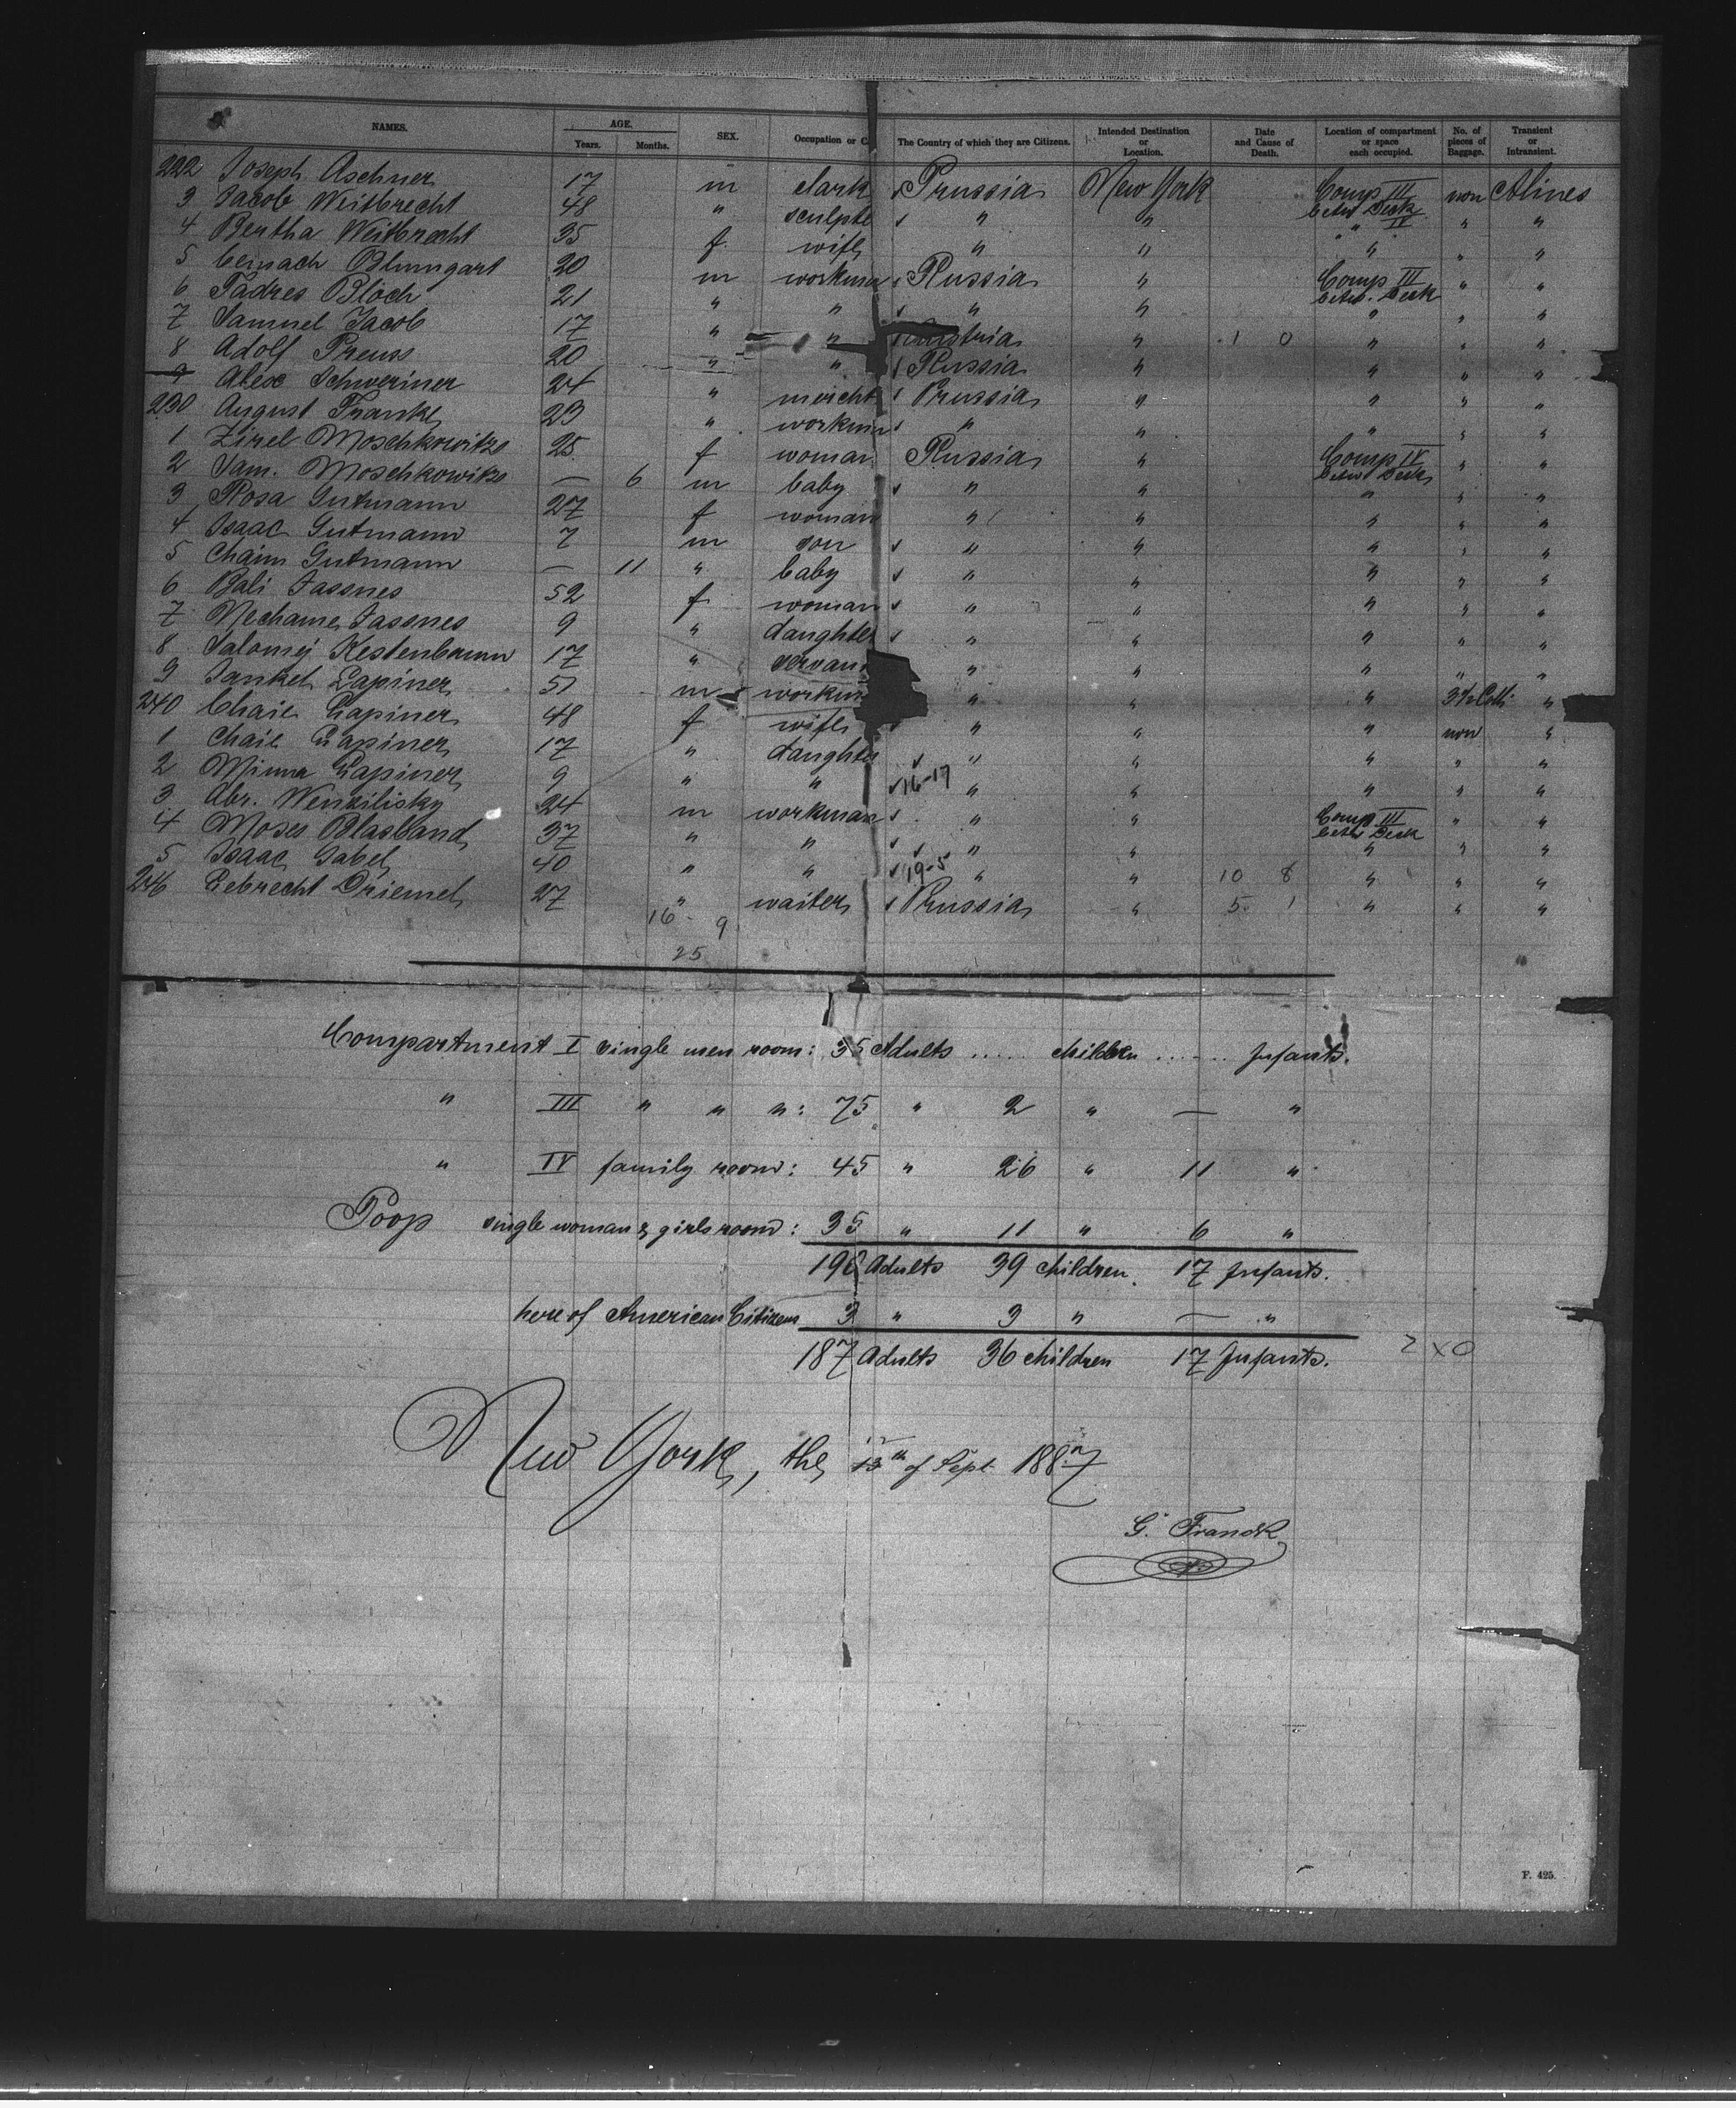 NAMES. AGE. SEX. Occupation or C The Country of which they are Citizens. Intended Destination or Location. Date and Cause of Death. Location of compartment or space each occupied. No. of pieces of Baggage. Transient or Intransient.
Years. Months.
222 Joseph Aschner 17 m clark Prussia New York Comp III betw Deck non Alines
3 Jacob Weitbrecht 48 " sculpte " " " " IV " "
4 Bertha Weitbrecht 35 f wife " " " " "
5 Blumgart 20 m workman Russia " Comp III betw. Deck " "
6 Tadres Bloch 21 " " " " " " "
7 Samuel Jacob 17 " " Austria " 1 0 " " "
8 Adolf Preuss 20 " " Russia " " " "
9 Alex Schweriner 24 " mercht Prussia " " " "
230 August Franke 23 " workman " " " " "
1 Zirel Moschkowitz 25 f woman Russia " Comp IV betw Deck " "
2 Sam. Moschkowitz — 6 m baby " " " " "
3 Rosa Gutmann 27 f woman " " " " "
4 Isaac Gutmann 7 m son " " " " "
5 Chaim Gutmann — 11 " baby " " " " "
6 Bali Jassnes 52 f woman " " " " "
7 Nechame Jassnes 9 " daughter " " " " "
8 Salomej Kestenbaum 17 " servan " " " " "
9 Jankel Lapiner 51 m workm " " " 3 "
240 Chaie Lapiner 48 f wife " " " non "
1 Chaie Lapiner 17 " daughter " " " " "
2 Minna Lapiner 9 " " 16-17 " " " " "
3 Abr. 24 m workman " " Comp III betw Deck " "
4 Moses Blasband 37 " " " " " " "
5 Isaac Gabel 40 " " 19-5 " " 10 8 " " "
246 Lebrecht Driemel 27 " waiter Prussia " 5 1 " " "
16 - 9
25
Compartment I single men room: 35 Adults ..... children ...... Infants.
" III " " ": 75 " 2 " — "
" IV family room: 45 " 26 " 11 "
Poop single woman & girls room: 35 " 11 " 6 "
190 Adults 39 children. 17 Infants.
here of American Citizens 3 " 3 " — "
187 Adults 36 children 17 Infants. 2 x 0
New York, the 13th of Sept. 1887
G. Franck
F. 425.